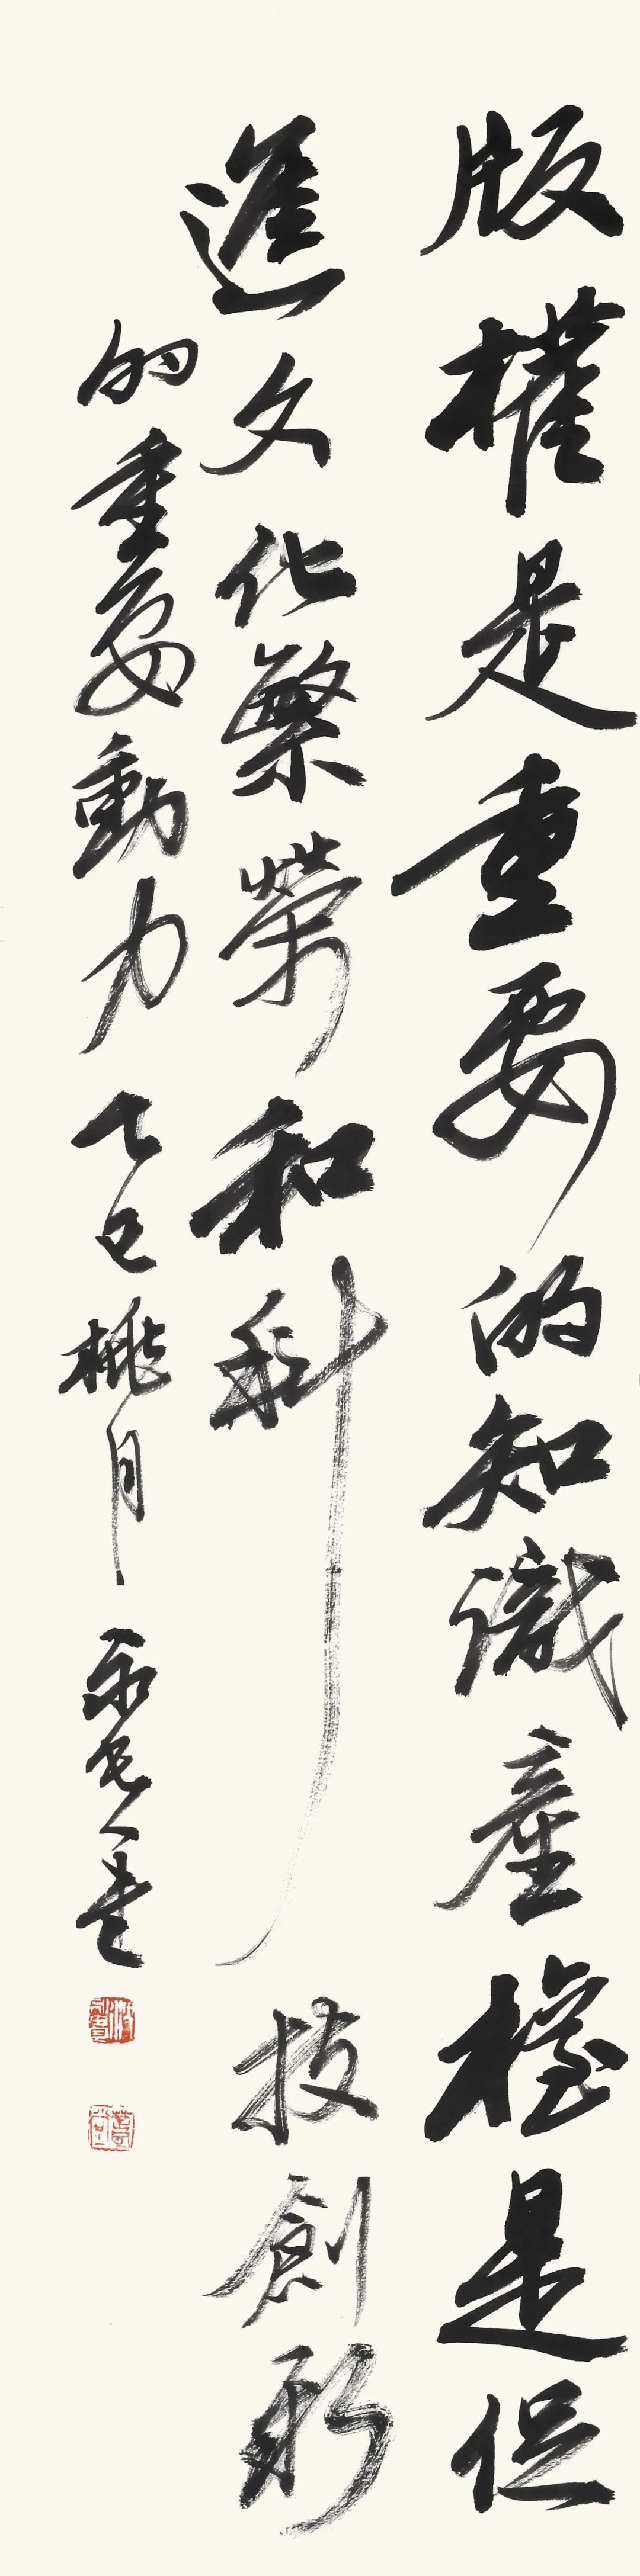 版權是重要的知識產權是促
進文化繁榮和科技創新
的重要動力 乙巳桃月 書